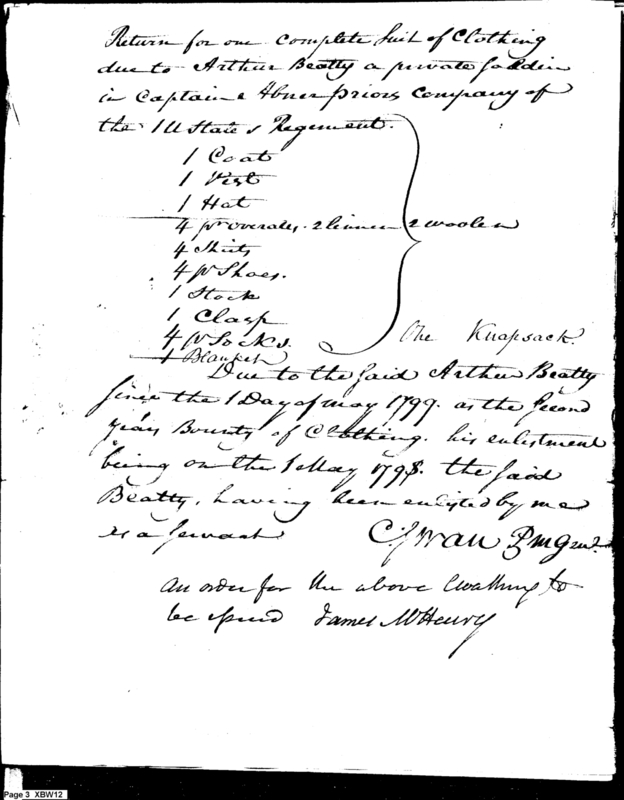 Return for one complete Suit of Clothing
due to Arthur Beatty a private Soldier
in Captain Abner Priors Company of
the 1 U States Regiment.
1 Coat
1 Vest
1 Hat
4 pr overalls. 2 linnen 2 woolen
4 Shirts
4 pr Shoes.
1 Stock
1 Clasp
4 pr Socks.
1 Blanket
One Knapsack.
Due to the said Arthur Beatty
since the 1 Day of may 1799. as the Second
years Bounty of Clothing. his enlistment
being on the 1 May 1798. the said
Beatty, having been enlisted by me
as a servant
C Swan PmGenl.
An order for the above Cloathing to
be issued James McHenry
Page 3 XBW12